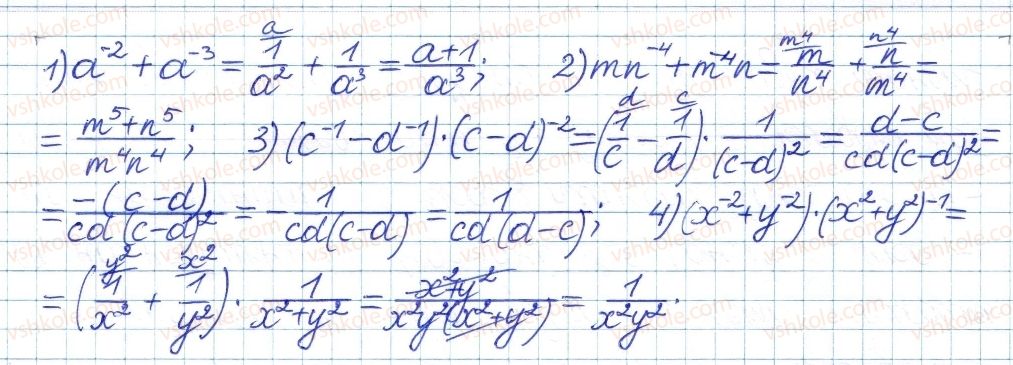 1) a⁻² + a⁻³ = ᵃ⁄ 1/a² + 1/a³ = (a+1)/a³; 2) mn⁻⁴ + m⁻⁴n = ᵐ⁴⁄ m/n⁴ + ⁿ⁴⁄ n/m⁴ =
= (m⁵+n⁵)/(m⁴n⁴); 3) (c⁻¹ − d⁻¹)·(c−d)⁻² = (ᵈ⁄ 1/c − ᶜ⁄ 1/d)· 1/(c−d)² = (d−c)/(cd(c−d)²) =
= −(c−d)/(cd(c−d)²) = − 1/(cd(c−d)) = 1/(cd(d−c)); 4) (x⁻²+y⁻²)·(x²+y²)⁻¹ =
= (ʸ²⁄ 1/x² + ˣ²⁄ 1/y²)· 1/(x²+y²) = (x²+y²)/(x²y²(x²+y²)) = 1/(x²y²).